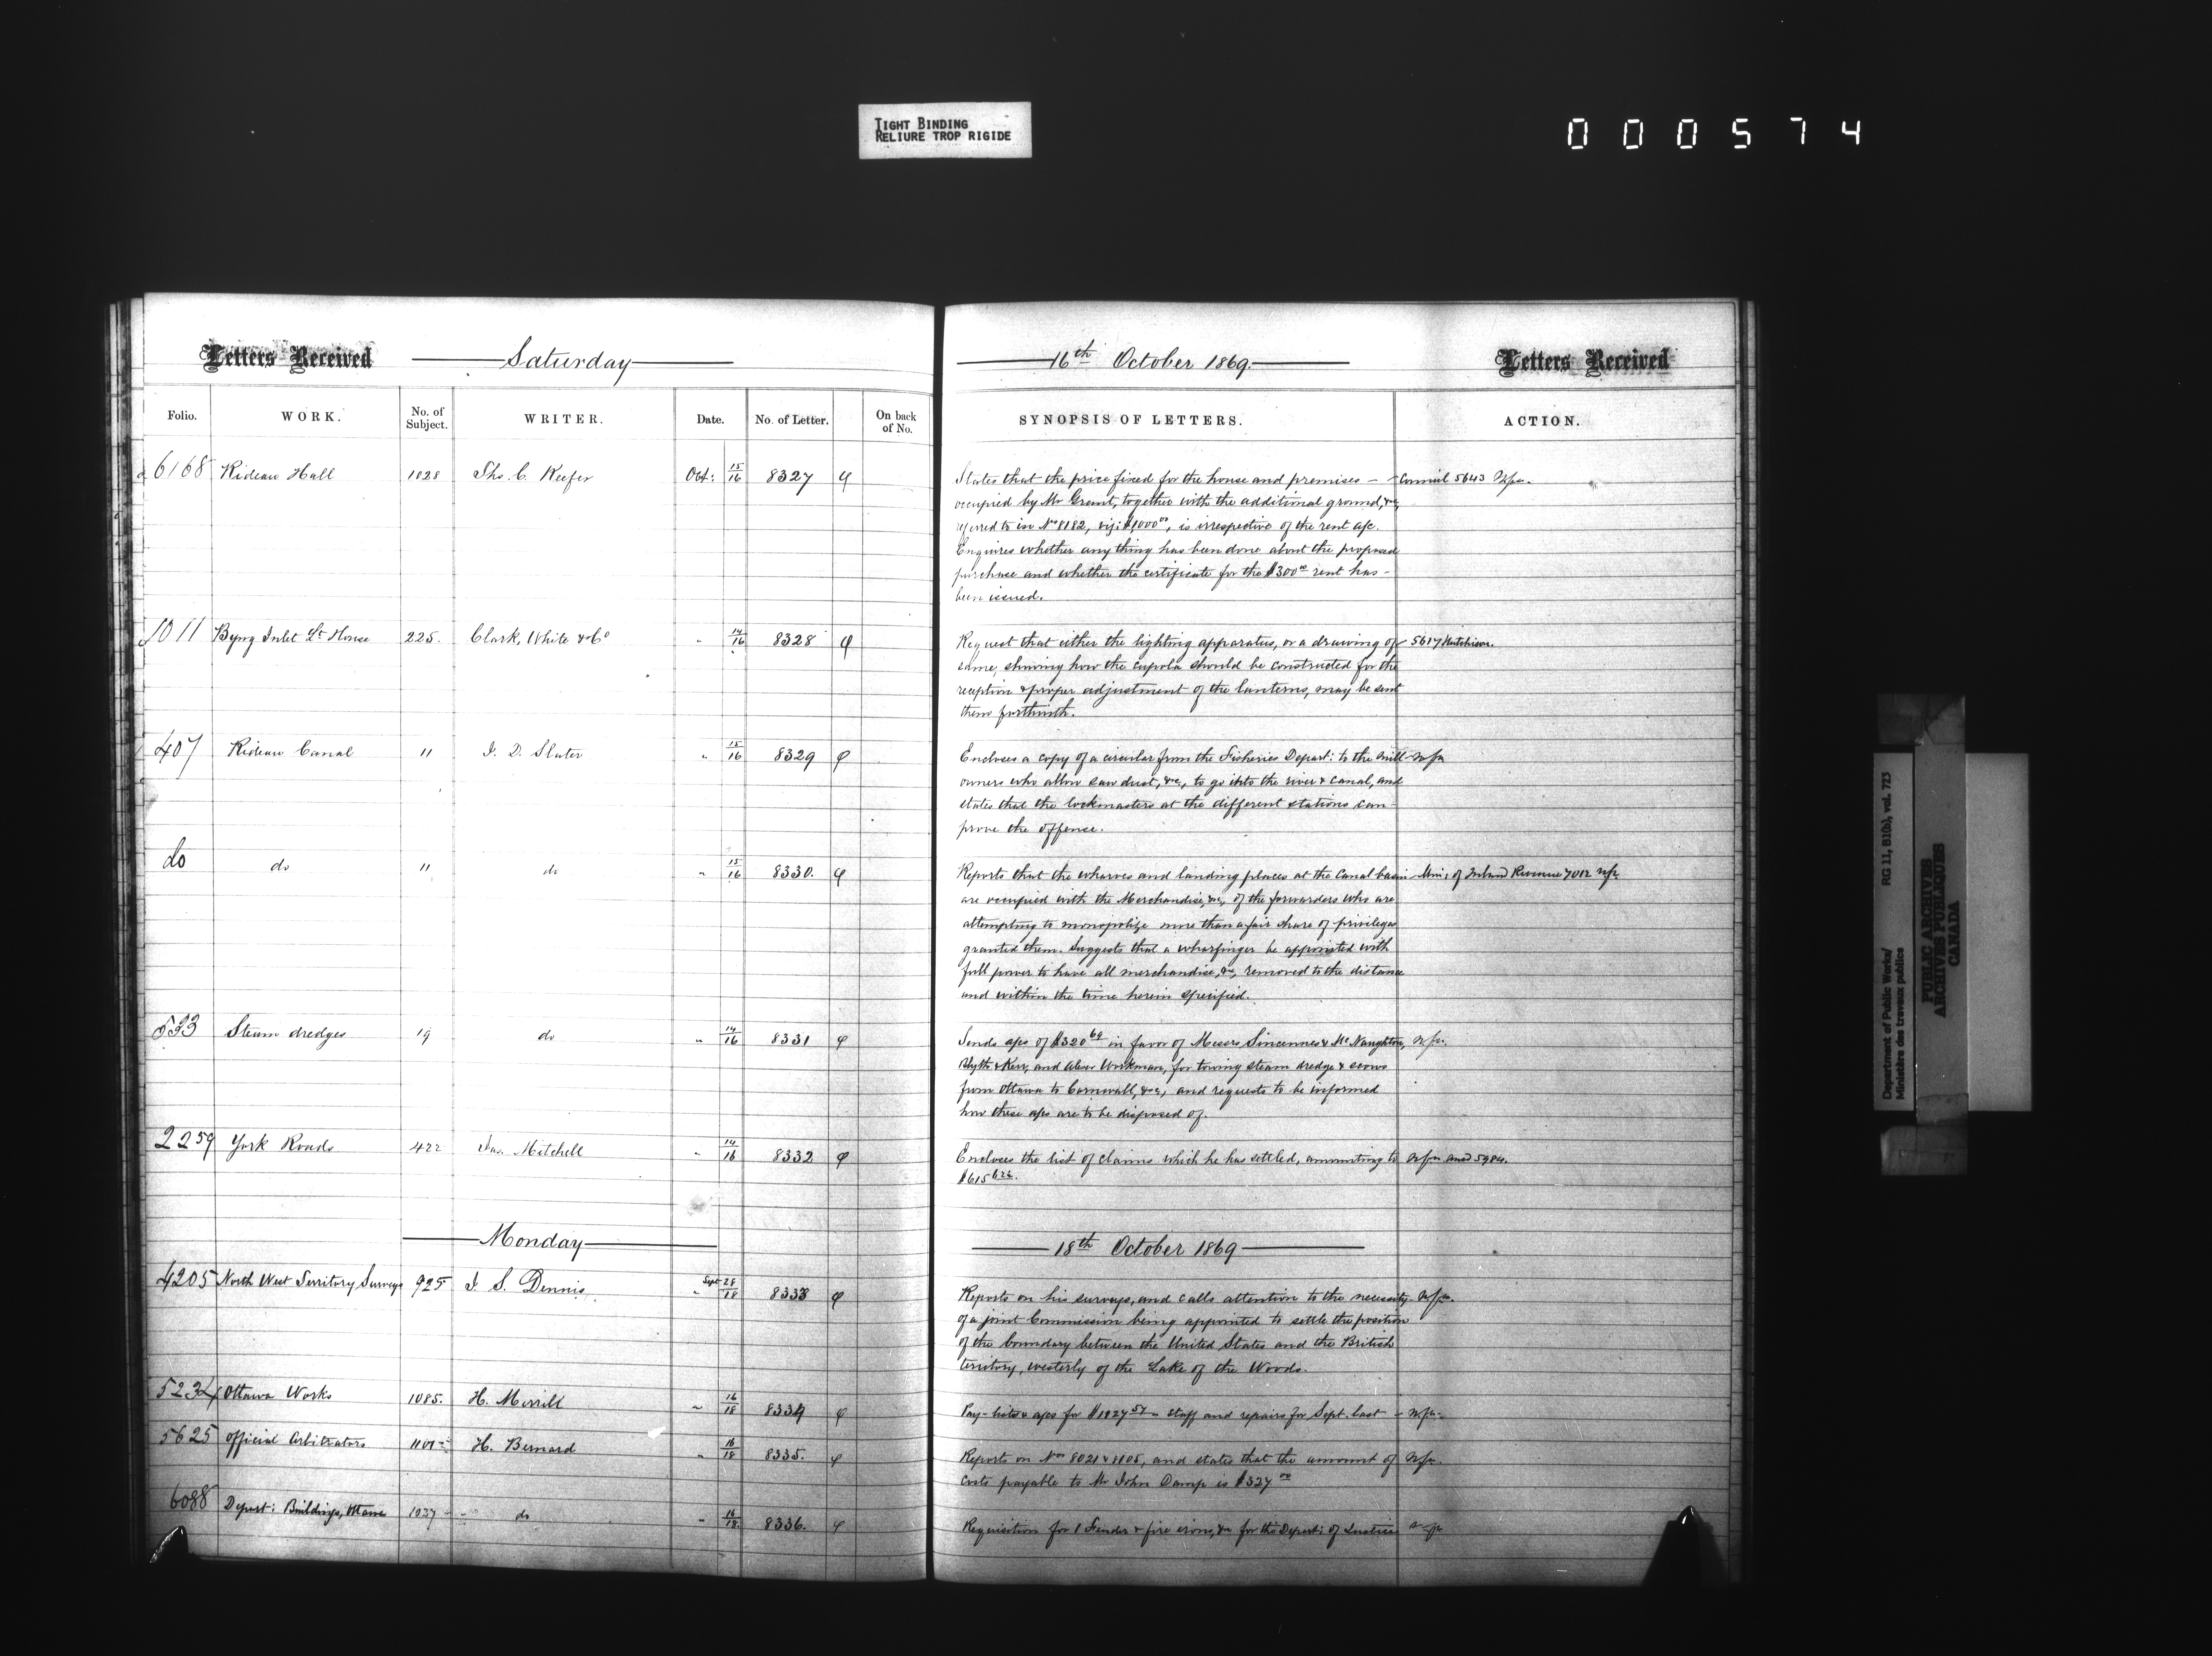 TIGHT BINDING
RELIURE TROP RIGIDE
000574
Letters Received
Saturday
16th October 1869.
Letters Received
Folio. WORK. No. of Subject. WRITER. Date. No. of Letter. On back of No. SYNOPSIS OF LETTERS. ACTION.
6168 Rideau Hall 1028 Thos. C. Keefer Oct: 15/16 8327
States that the price fixed for the house and premises — Council 5643
occupied by Mr Grant, together with the additional ground, &c,
referred to in No 8182, viz: $1,000 00, is irrespective of the rent a/c.
Enquires whether any thing has been done about the proposed
purchase and whether the certificate for the $300 00 rent has -
been issued.
1011 Byng Inlet Lt House 225. Clark, White & Co " 14/16 8328
Request that either the lighting apparatus, or a drawing of 5617 Hutchison.
same shewing how the cupola should be constructed for the
reception & proper adjustment of the lanterns, may be sent
them forthwith.
407 Rideau Canal 11 J. D. Slater " 15/16 8329
Encloses a copy of a circular from the Fisheries Depart: to the mill
owners who allow saw dust, &c, to go into the river & canal, and
states that the lockmasters at the different stations can -
prove the offense.
do do 11 do " 15/16 8330.
Reports that the wharves and landing places at the Canal basin - Min: of Inland Revenue 7012
are occupied with the Merchandise, &c, of the forwarders who are
attempting to monopolize more than a fair share of privileges
granted them. Suggests that a wharfinger be appointed with
full power to have all merchandise, &c, removed to the distance
and within the time herein specified.
533 Steam dredges 19 do " 14/16 8331
Sends a/cs of $320 69 in favor of Messrs Sincennes & McNaughton,
Blyth & Kerr, and Alexr Workman, for towing steam dredge & scows
from Ottawa to Cornwall, &c, and requests to be informed
how these a/cs are to be disposed of.
2259 York Roads 422 Jas. Mitchell " 14/16 8332
Encloses the list of claims which he has settled, amounting to and 5984.
Monday
18th October 1869
4205 North West Territory Surveys 925 J. S. Dennis Sept 28 " 18 8333
Reports on his surveys, and calls attention to the necessity
of a joint Commission being appointed to settle the position
of the boundary between the United States and the British
territory, westerly of the Lake of the Woods.
5234 Ottawa Works 1085. H. Merrill " 16/18 8334
Pay-lists & a/cs for $1927 57 - staff and repairs for Sept. last -
5625 Official Arbitrators H. Bernard " 16/18 8335.
Reports on Nos 8021 & 8105, and states that the amount of
costs payable to Mr John Camp is $327 00
6088 Depart: Buildings, Ottawa 1027 do " 16/18 8336.
Requisition for 1 Fender & fire irons, &c for the Depart: of Justice
Department of Public Works/
Ministère des travaux publics
RG 11, B1(b), vol. 723
PUBLIC ARCHIVES
ARCHIVES PUBLIQUES
CANADA